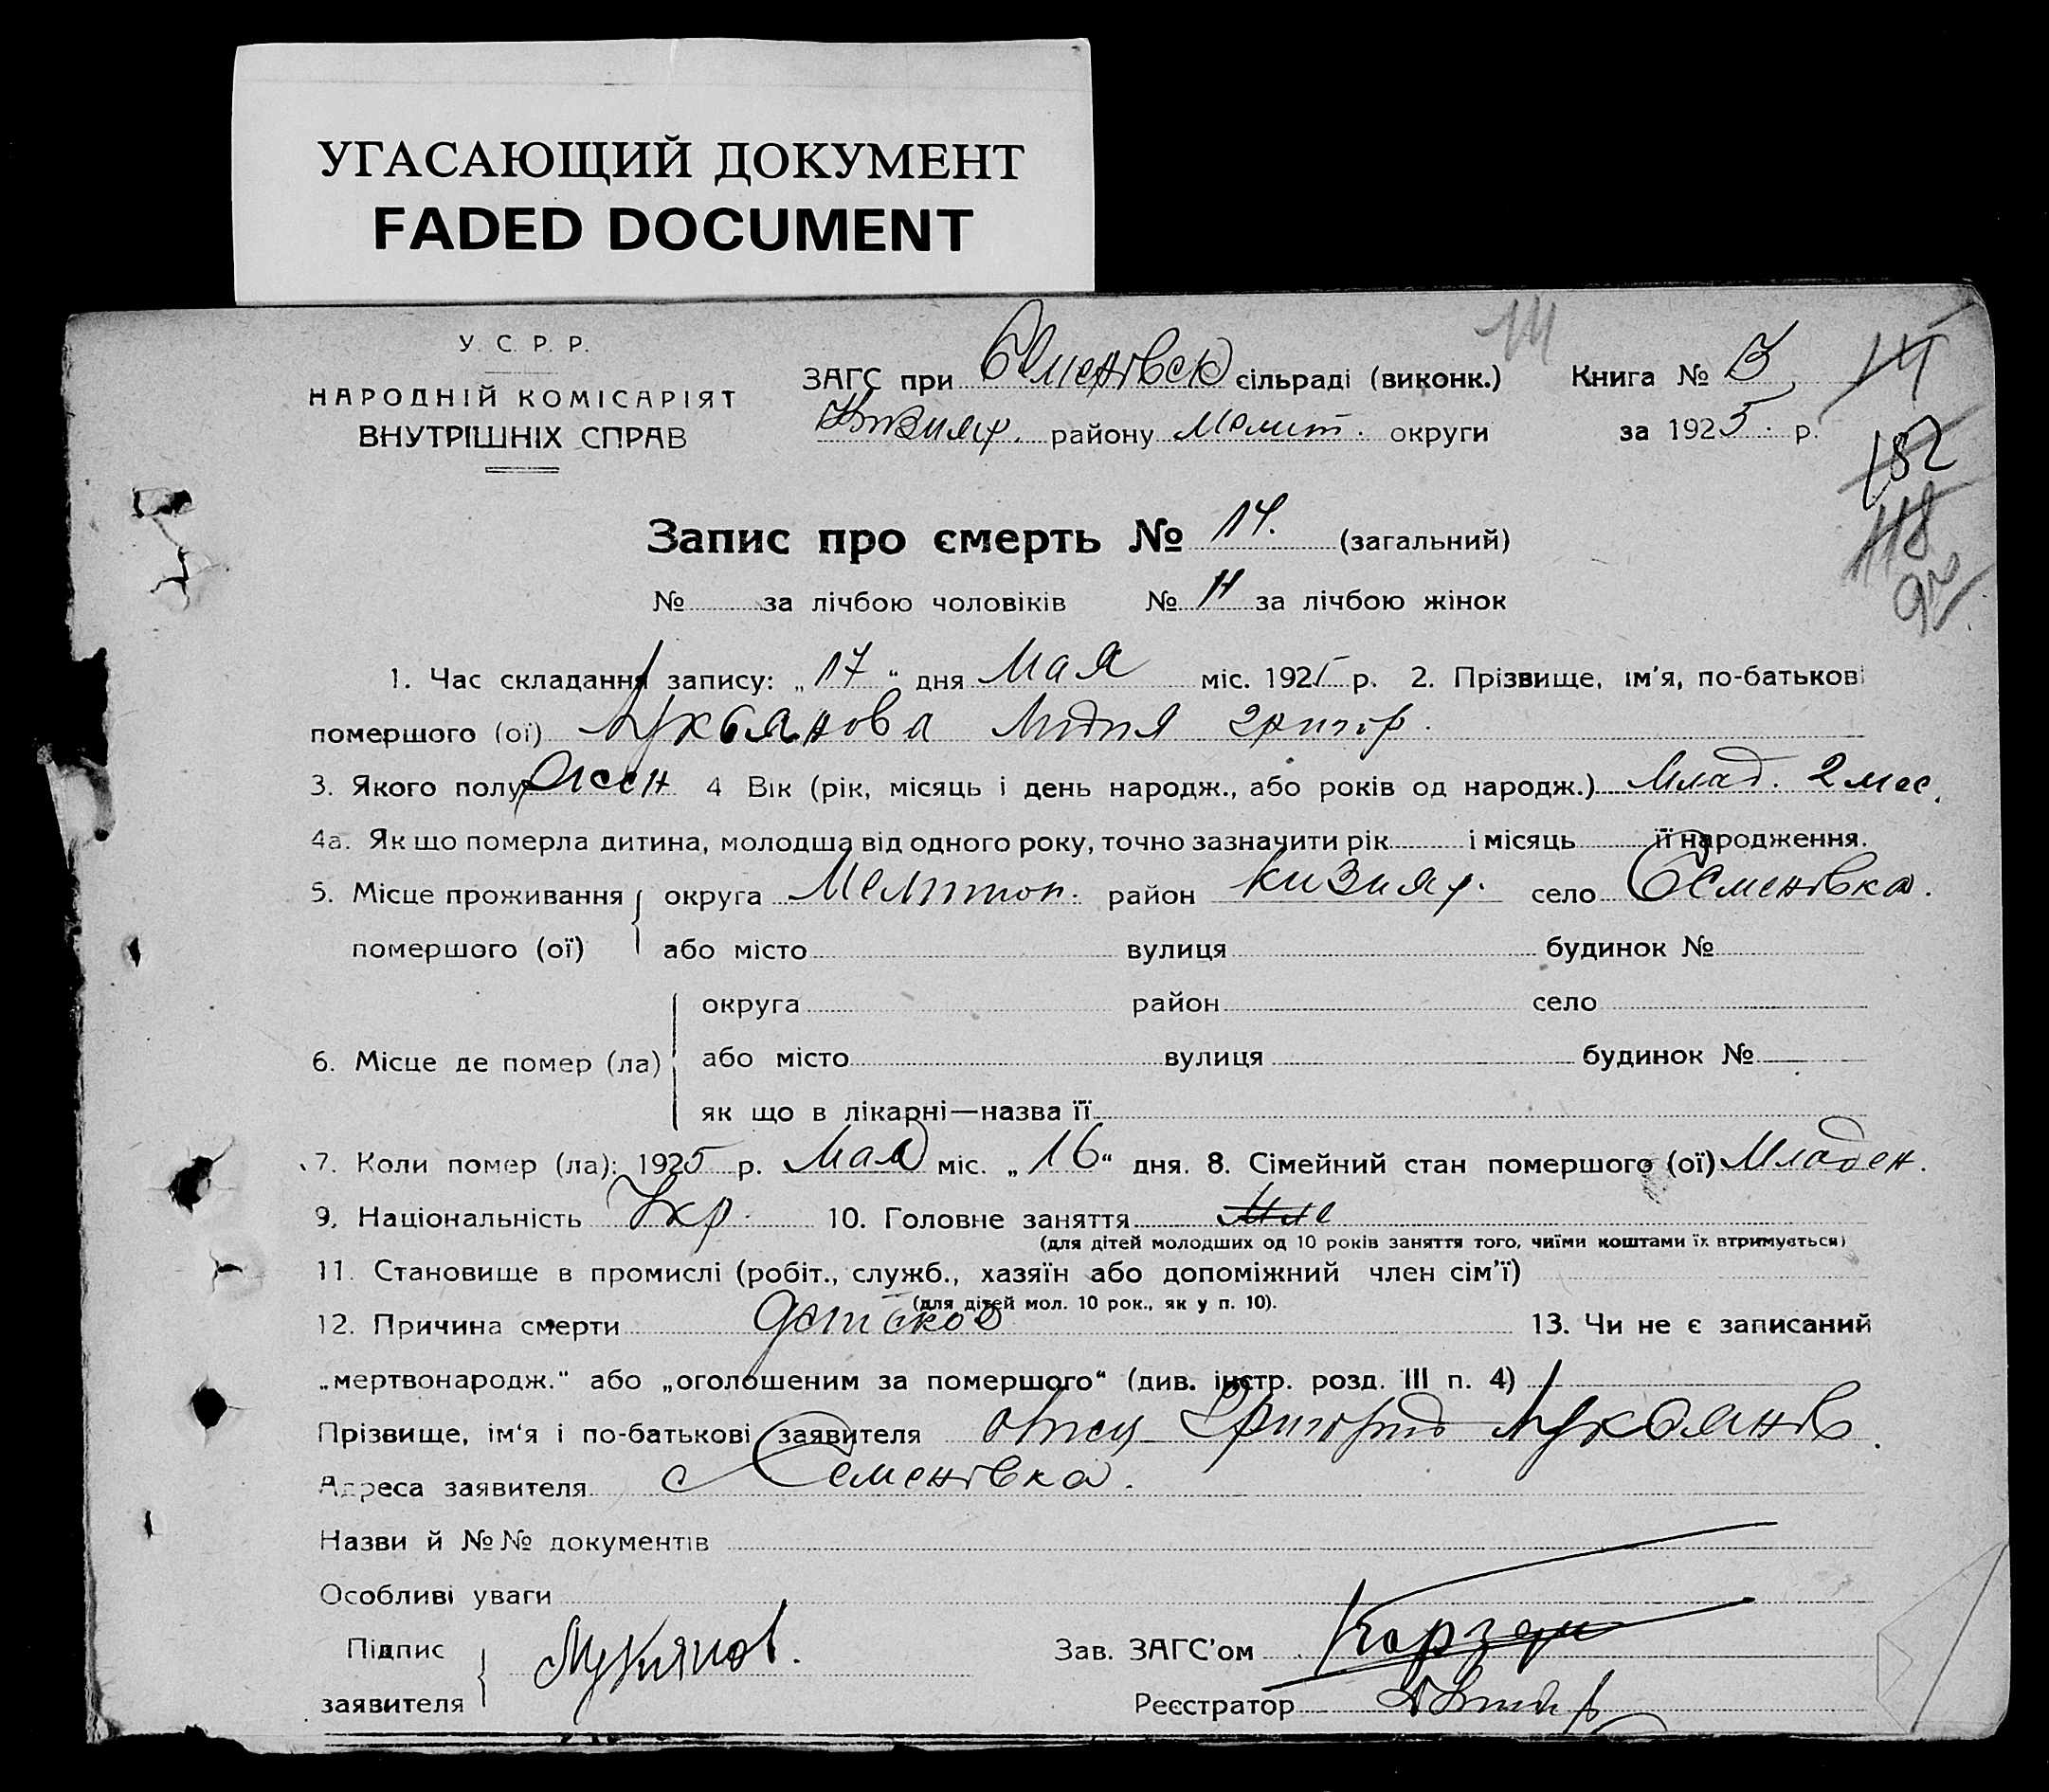 УГАСАЮЩИЙ ДОКУМЕНТ
FADED DOCUMENT
У. С. Р. Р.
НАРОДНІЙ КОМІСАРІЯТ
ВНУТРІШНІХ СПРАВ
ЗАГС при Семенівск сільраді (виконк.)
Кизияр. району Мелит. округи
Книга № 3
за 1925. р.
14
152
118
Запис про смерть № 14. (загальний)
№ за лічбою чоловіків № 11 за лічбою жінок
1. Час складання запису: „17“ дня Мая міс. 1925 р. 2. Прізвище, ім'я, по-батькові
помершого (ої) Лукьянова Лидия Григор.
3. Якого полу Жен 4 Вік (рік, місяць і день народж., або років од народж.) Млад. 2 мес.
4а. Як що померла дитина, молодша від одного року, точно зазначити рік і місяць її народження.
5. Місце проживання округа Мелитоп. район Кизияр. село Семенівка.
помершого (ої) або місто вулиця будинок №
округа район село
6. Місце де помер (ла) або місто вулиця будинок №
як що в лікарні—назва її
7. Коли помер (ла): 1925 р. Мая міс. „16“ дня. 8. Сімейний стан помершого (ої) Младен.
9. Національність Укр. 10. Головне заняття
(для дітей молодших од 10 років заняття того, чиїми коштами їх втримується)
11. Становище в промислі (робіт., служб., хазяїн або допоміжний член сім'ї)
(для дітей мол. 10 рок., як у п. 10).
12. Причина смерти Детская 13. Чи не є записаний
„мертвонародж.“ або „оголошеним за помершого“ (див. інстр. розд. III п. 4)
Прізвище, ім'я і по-батькові заявителя отец Григорий Лукьянов.
Адреса заявителя с Семенівка.
Назви й №№ документів
Особливі уваги
Підпис
заявителя Лукянов.
Зав. ЗАГС'ом
Реєстратор